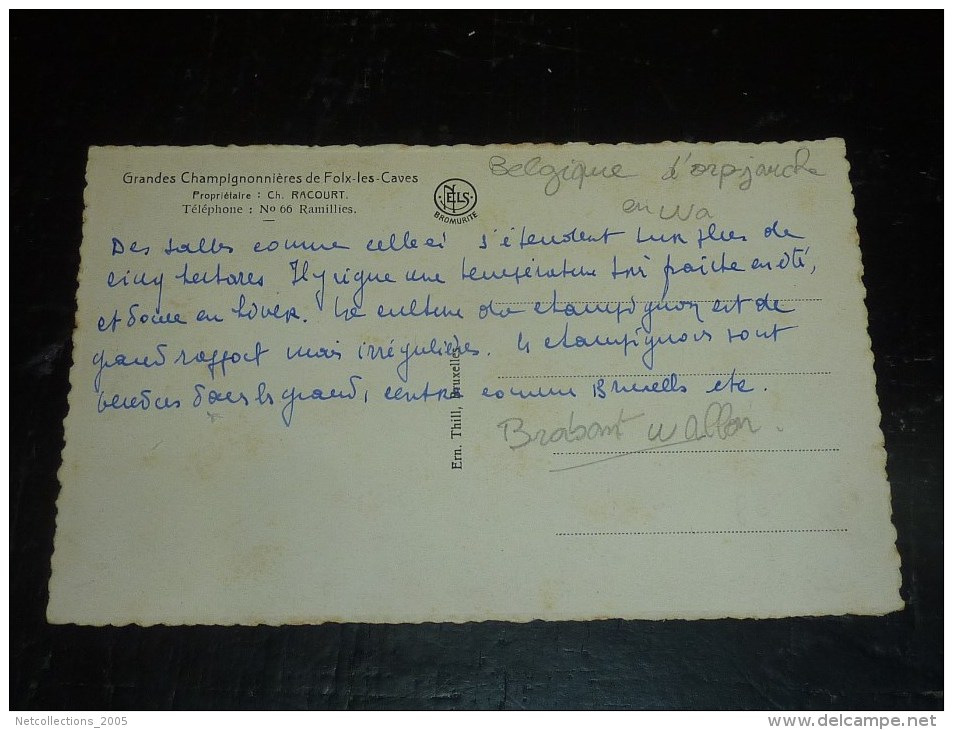 Grandes Champignonnières de Folx-les-Caves
Propriétaire : Ch. RACOURT.
Téléphone : No 66 Ramillies.
NELS
BROMURITE
Belgique d'orp-jauche
en wa
Des salles comme celle ci s'étendent sur plus de
cinq hectares. Il y règne une température très fraîche en été,
et douce en hiver. La culture du champignon est de
grand rapport mais irrégulière. Les champignons sont
vendus dans les grands centres comme Bruxelles etc.
Brabant wallon.
Ern. Thill, Bruxelles
Netcollections_2005
http://www.delcampe.net